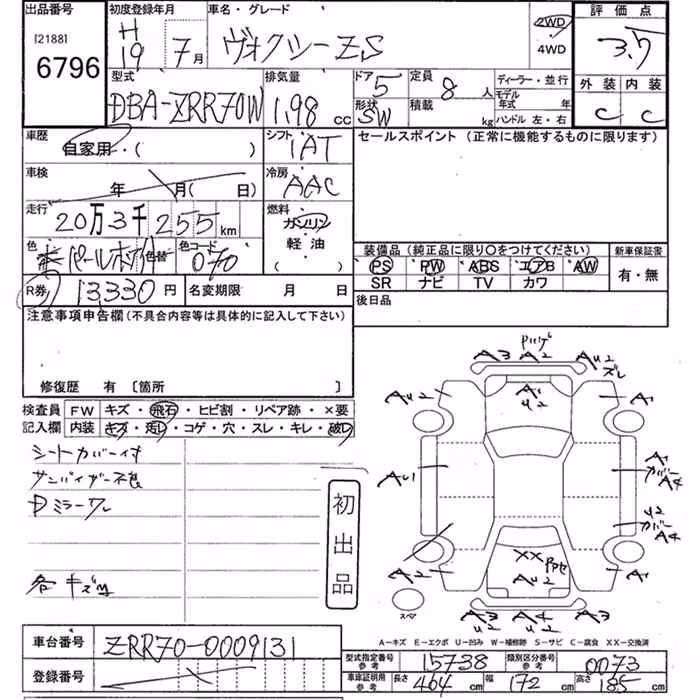 出品番号 初度登録年月 車名・グレード 評価点
[2188] 6796 H19 7月 ヴォクシー ZS 2WD 4WD 3.5
型式 DBA-ZRR70W 排気量 1.98 cc ドア 5 形状 SW 定員 8人 積載 kg ディーラー・並行 モデル年式 年 ハンドル 左・右 外装 C 内装 C
車歴 自家用・( ) シフト IAT セールスポイント (正常に機能するものに限ります)
車検 年 月( 日) 冷房 AAC
走行 20万3千255 km 燃料 ガソリン 軽油 ( )
色 パールホワイト 色替 色コード 070 装備品 (純正品に限り○をつけてください) 新車保証書
PS PW ABS エアB AW 有・無
SR ナビ TV カワ
R券 13330円 名変期限 月 日 後日品
注意事項申告欄 (不具合内容等は具体的に記入して下さい)
修復歴 有 [箇所 ]
検査員 FW キズ・飛石・ヒビ割・リペア跡・×要
記入欄 内装 キズ・汚レ・コゲ・穴・スレ・キレ・破レ
シートカバー付
サンバイザー不良
Dミラーワレ
各キズ
初出品
A3 A2 AU2 ズレ
AU2 A1 U2 A1
AU1 A1 カバー A4
U2 カバー A4
A2 XX AU2 A1
スペア AU2 A4 U2 A3
A-キズ E-エクボ U-凹み W-補修跡 S-サビ C-腐食 XX-交換済
車台番号 ZRR70-0009131
登録番号
型式指定番号 参考 15738 類別区分番号 参考 0073
車庫証明用 参考 長さ 464 cm 幅 172 cm 高さ 185 cm